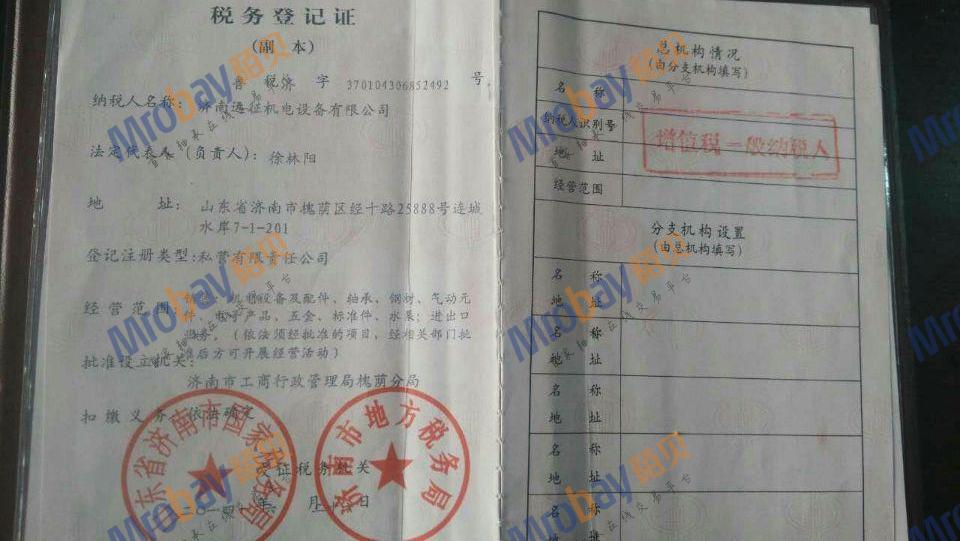 税务登记证
(副 本)
鲁 税济 字 370104306852492 号
纳税人名称: 济南迅征机电设备有限公司
法定代表人(负责人): 徐林阳
地 址: 山东省济南市槐荫区经十路25888号连城
水岸7-1-201
登记注册类型:私营有限责任公司
经营范围: 销售:机电设备及配件、轴承、钢材、气动元
件、电子产品、五金、标准件、水泵;进出口
业务。(依法须经批准的项目,经相关部门批
准后方可开展经营活动)
批准设立机关:
济南市工商行政管理局槐荫分局
扣缴义务: 依法确定
发证税务机关
年 月 日
山东省济南市国家税务局
济南市地方税务局
总机构情况
(由分支机构填写)
名 称
纳税人识别号
地 址
经营范围
增值税一般纳税人
分支机构设置
(由总机构填写)
名 称
地 址
名 称
地 址
名 称
地 址
名 称
地 址
名 称
地 址
Mrobay陌贝